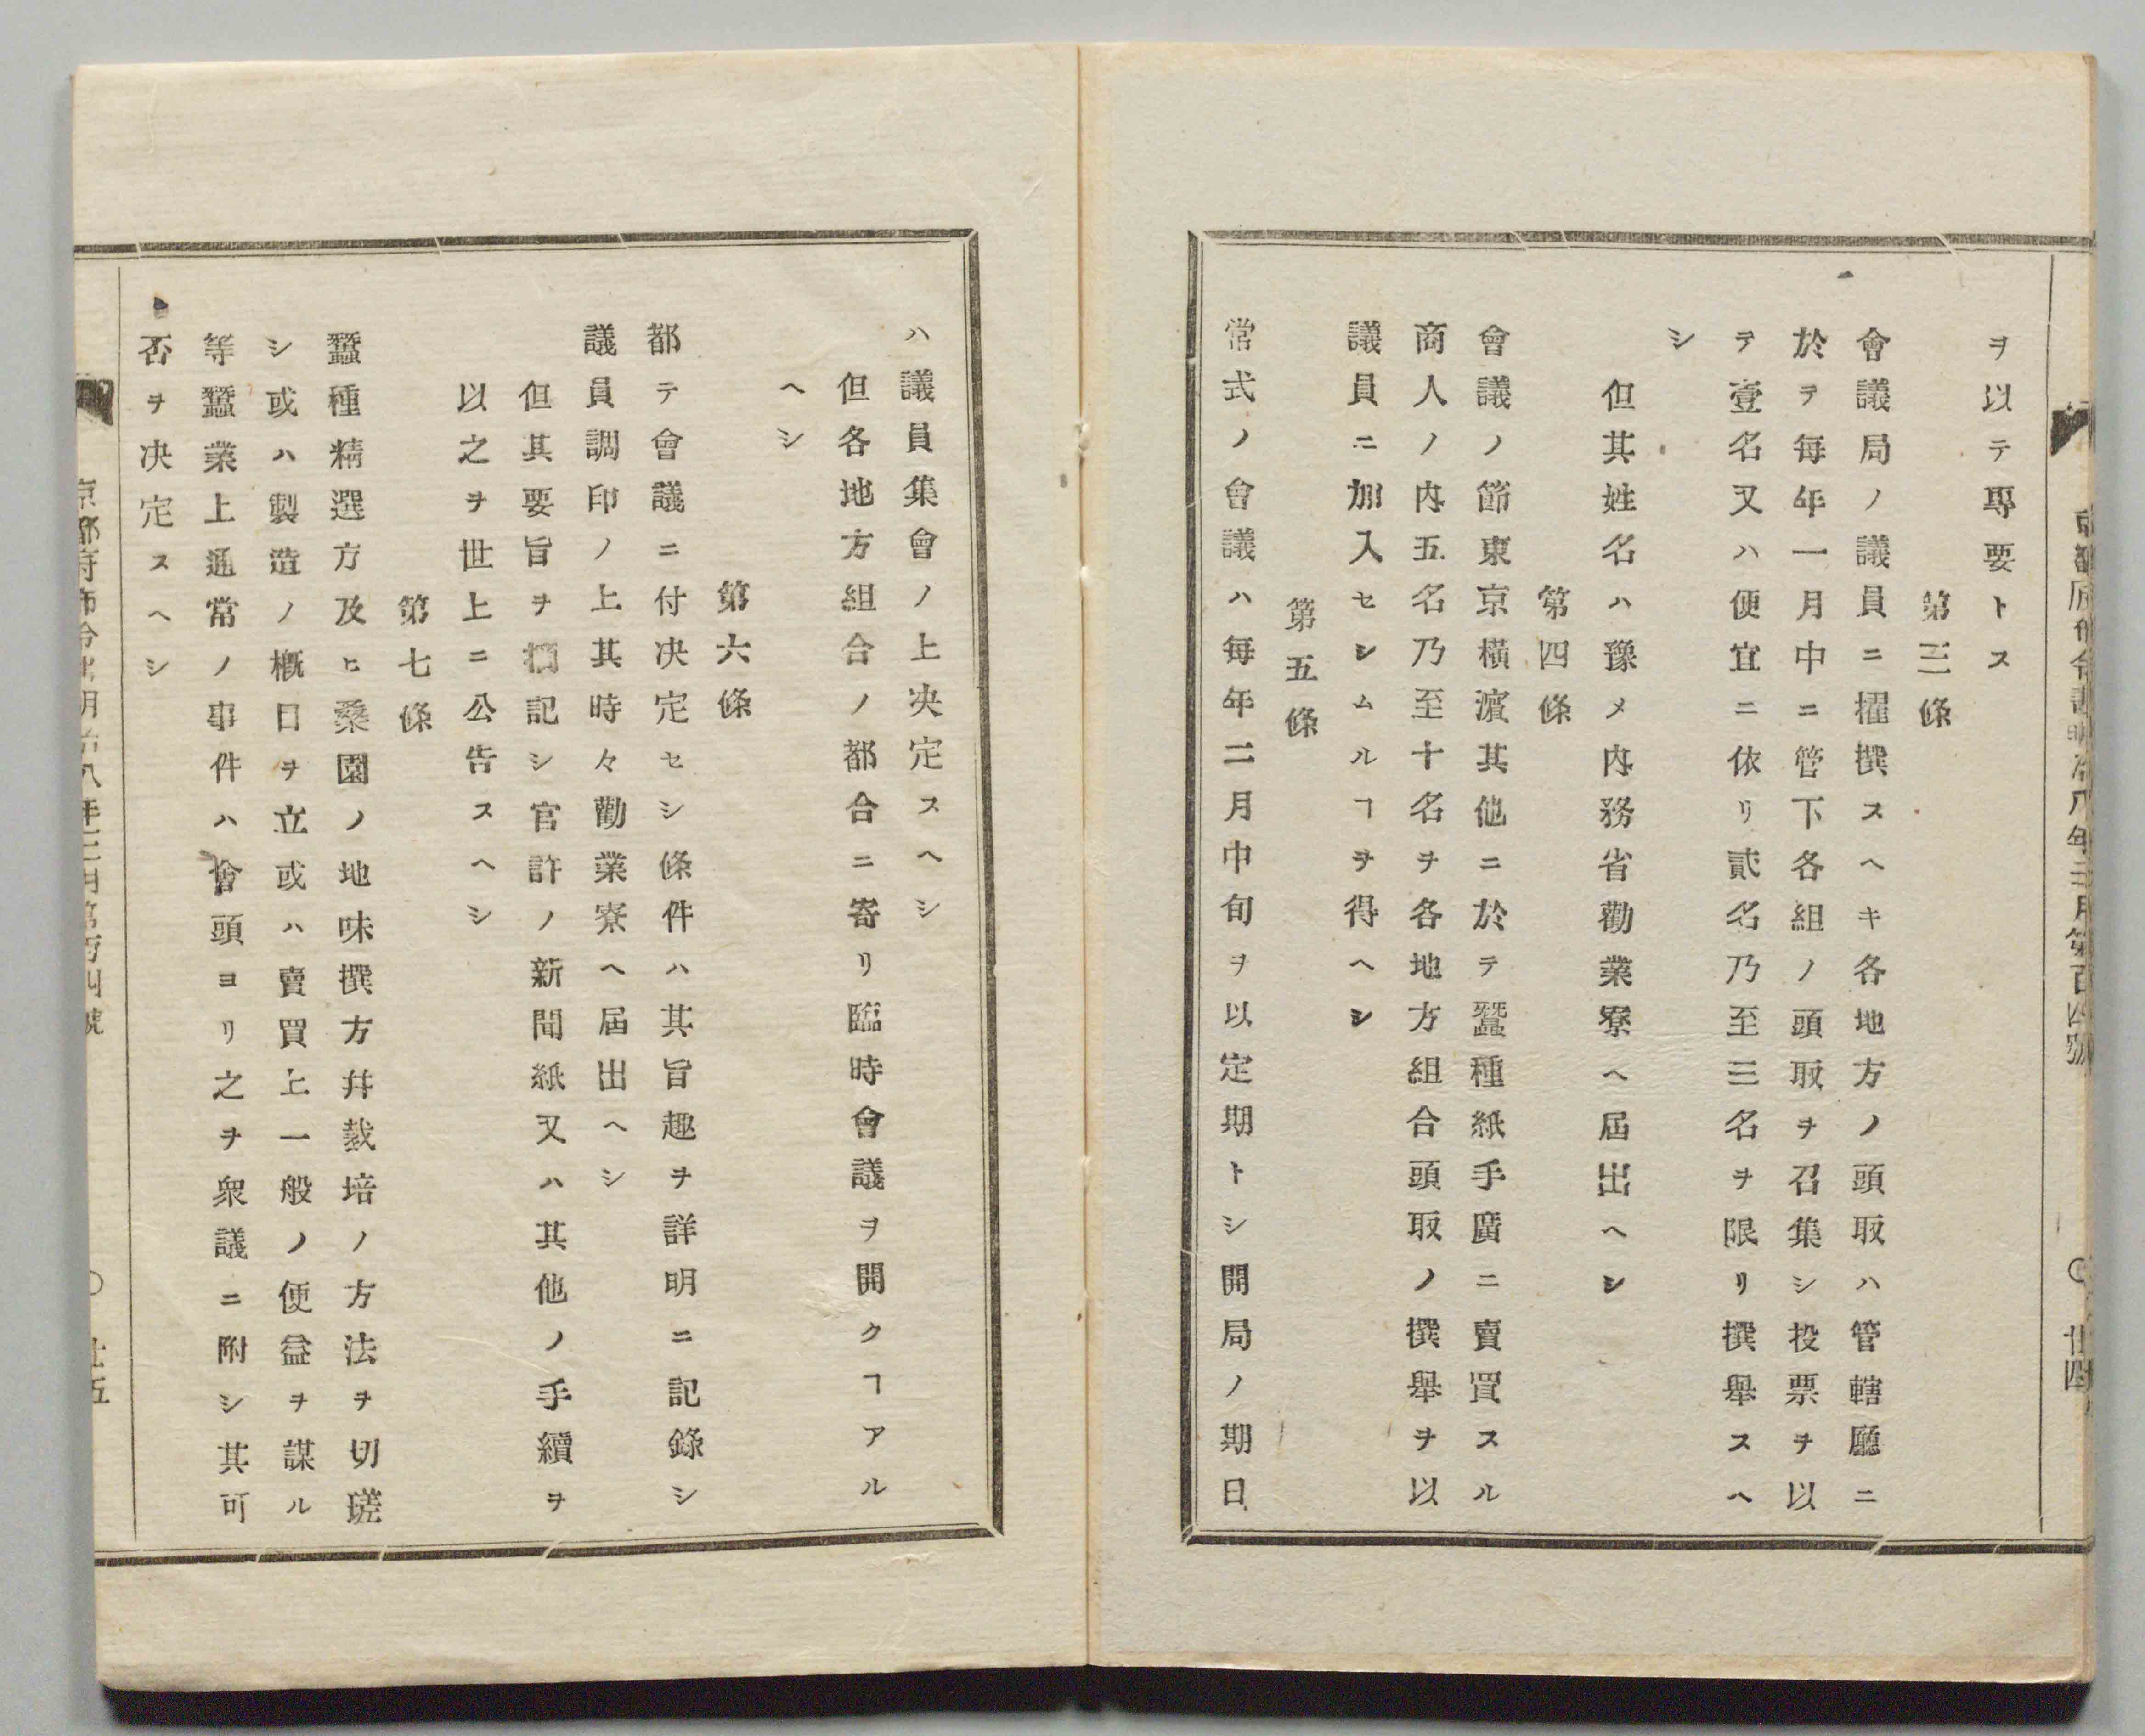 ヲ以テ專要トス
第三條
會議局ノ議員ニ擢撰スヘキ各地方ノ頭取ハ管轄廳ニ
於テ每年一月中ニ管下各組ノ頭取ヲ召集シ投票ヲ以
テ壹名又ハ便宜ニ依リ貳名乃至三名ヲ限リ撰舉スヘ
シ
但其姓名ハ豫メ內務省勸業寮ヘ屆出ヘシ
第四條
會議ノ節東京橫濱其他ニ於テ蠶種紙手廣ニ賣買スル
商人ノ內五名乃至十名ヲ各地方組合頭取ノ撰舉ヲ以
議員ニ加入セシムルヿヲ得ヘシ
第五條
常式ノ會議ハ每年二月中旬ヲ以定期トシ開局ノ期日
ハ議員集會ノ上決定スヘシ
但各地方組合ノ都合ニ寄リ臨時會議ヲ開クヿアル
ヘシ
第六條
都テ會議ニ付決定セシ條件ハ其旨趣ヲ詳明ニ記錄シ
議員調印ノ上其時々勸業寮ヘ屆出ヘシ
但其要旨ヲ記シ官許ノ新聞紙又ハ其他ノ手續ヲ
以之ヲ世上ニ公告スヘシ
第七條
蠶種精選方及ヒ桑園ノ地味撰方幷栽培ノ方法ヲ切瑳
シ或ハ製造ノ概目ヲ立或ハ賣買上一般ノ便益ヲ謀ル
等蠶業上通常ノ事件ハ會頭ヨリ之ヲ衆議ニ附シ其可
否ヲ決定スヘシ